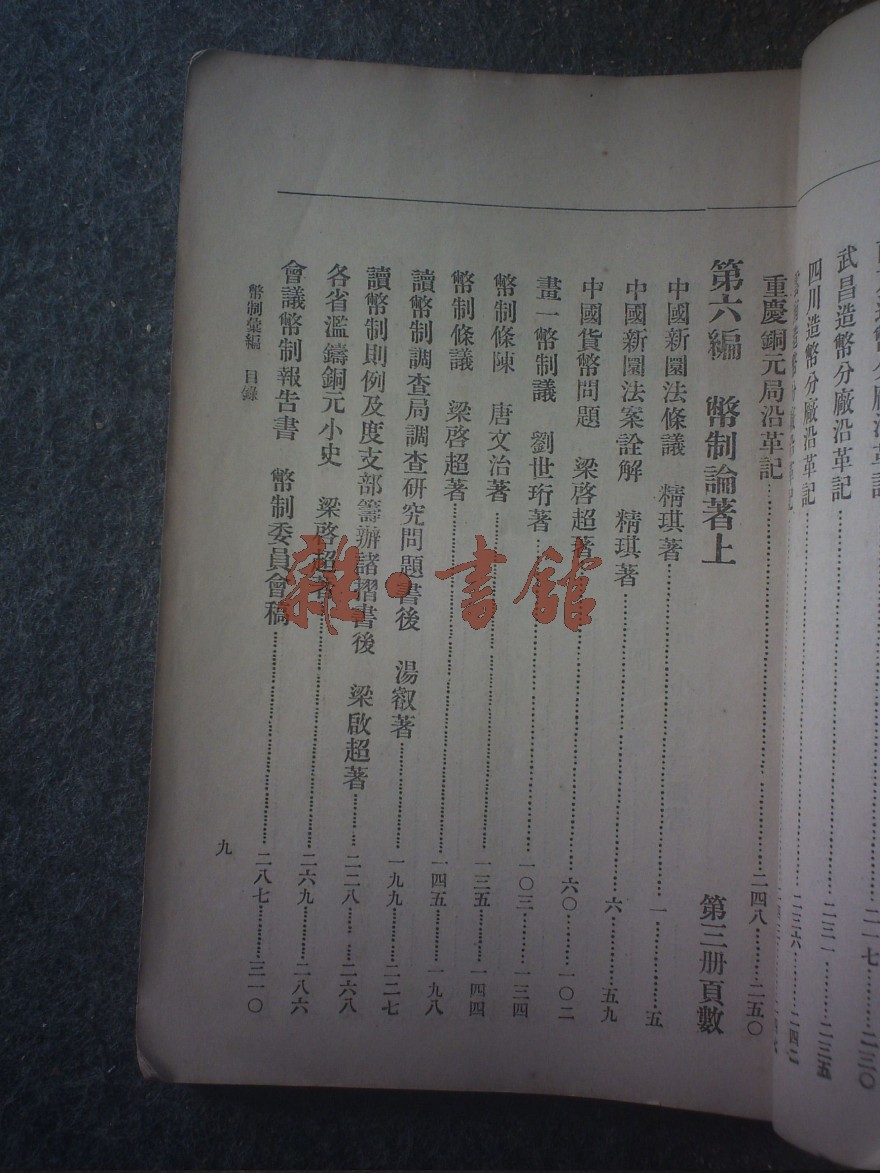 武昌造幣分廠沿革記……二三一……二三五
四川造幣分廠沿革記……二三六……二四二
重慶銅元局沿革記……二四八……二五〇
第六編　幣制論著上　第三册頁數
中國新圜法條議　精琪著……一……五
中國新圜法案詮解　精琪著……六……五九
中國貨幣問題　梁啓超著……六〇……一〇二
畫一幣制議　劉世珩著……一〇三……一三四
幣制條陳　唐文治著……一三五……一四四
幣制條議　梁啓超著……一四五……一九八
讀幣制調查局調查研究問題書後　湯叡著……一九九……二二七
讀幣制則例及度支部籌辦諸摺書後　梁啟超著……二二八……二六八
各省濫鑄銅元小史　梁啓超著……二六九……二八六
會議幣制報告書　幣制委員會稿……二八七……三一〇
幣制彙編　目錄
九
雜·書館